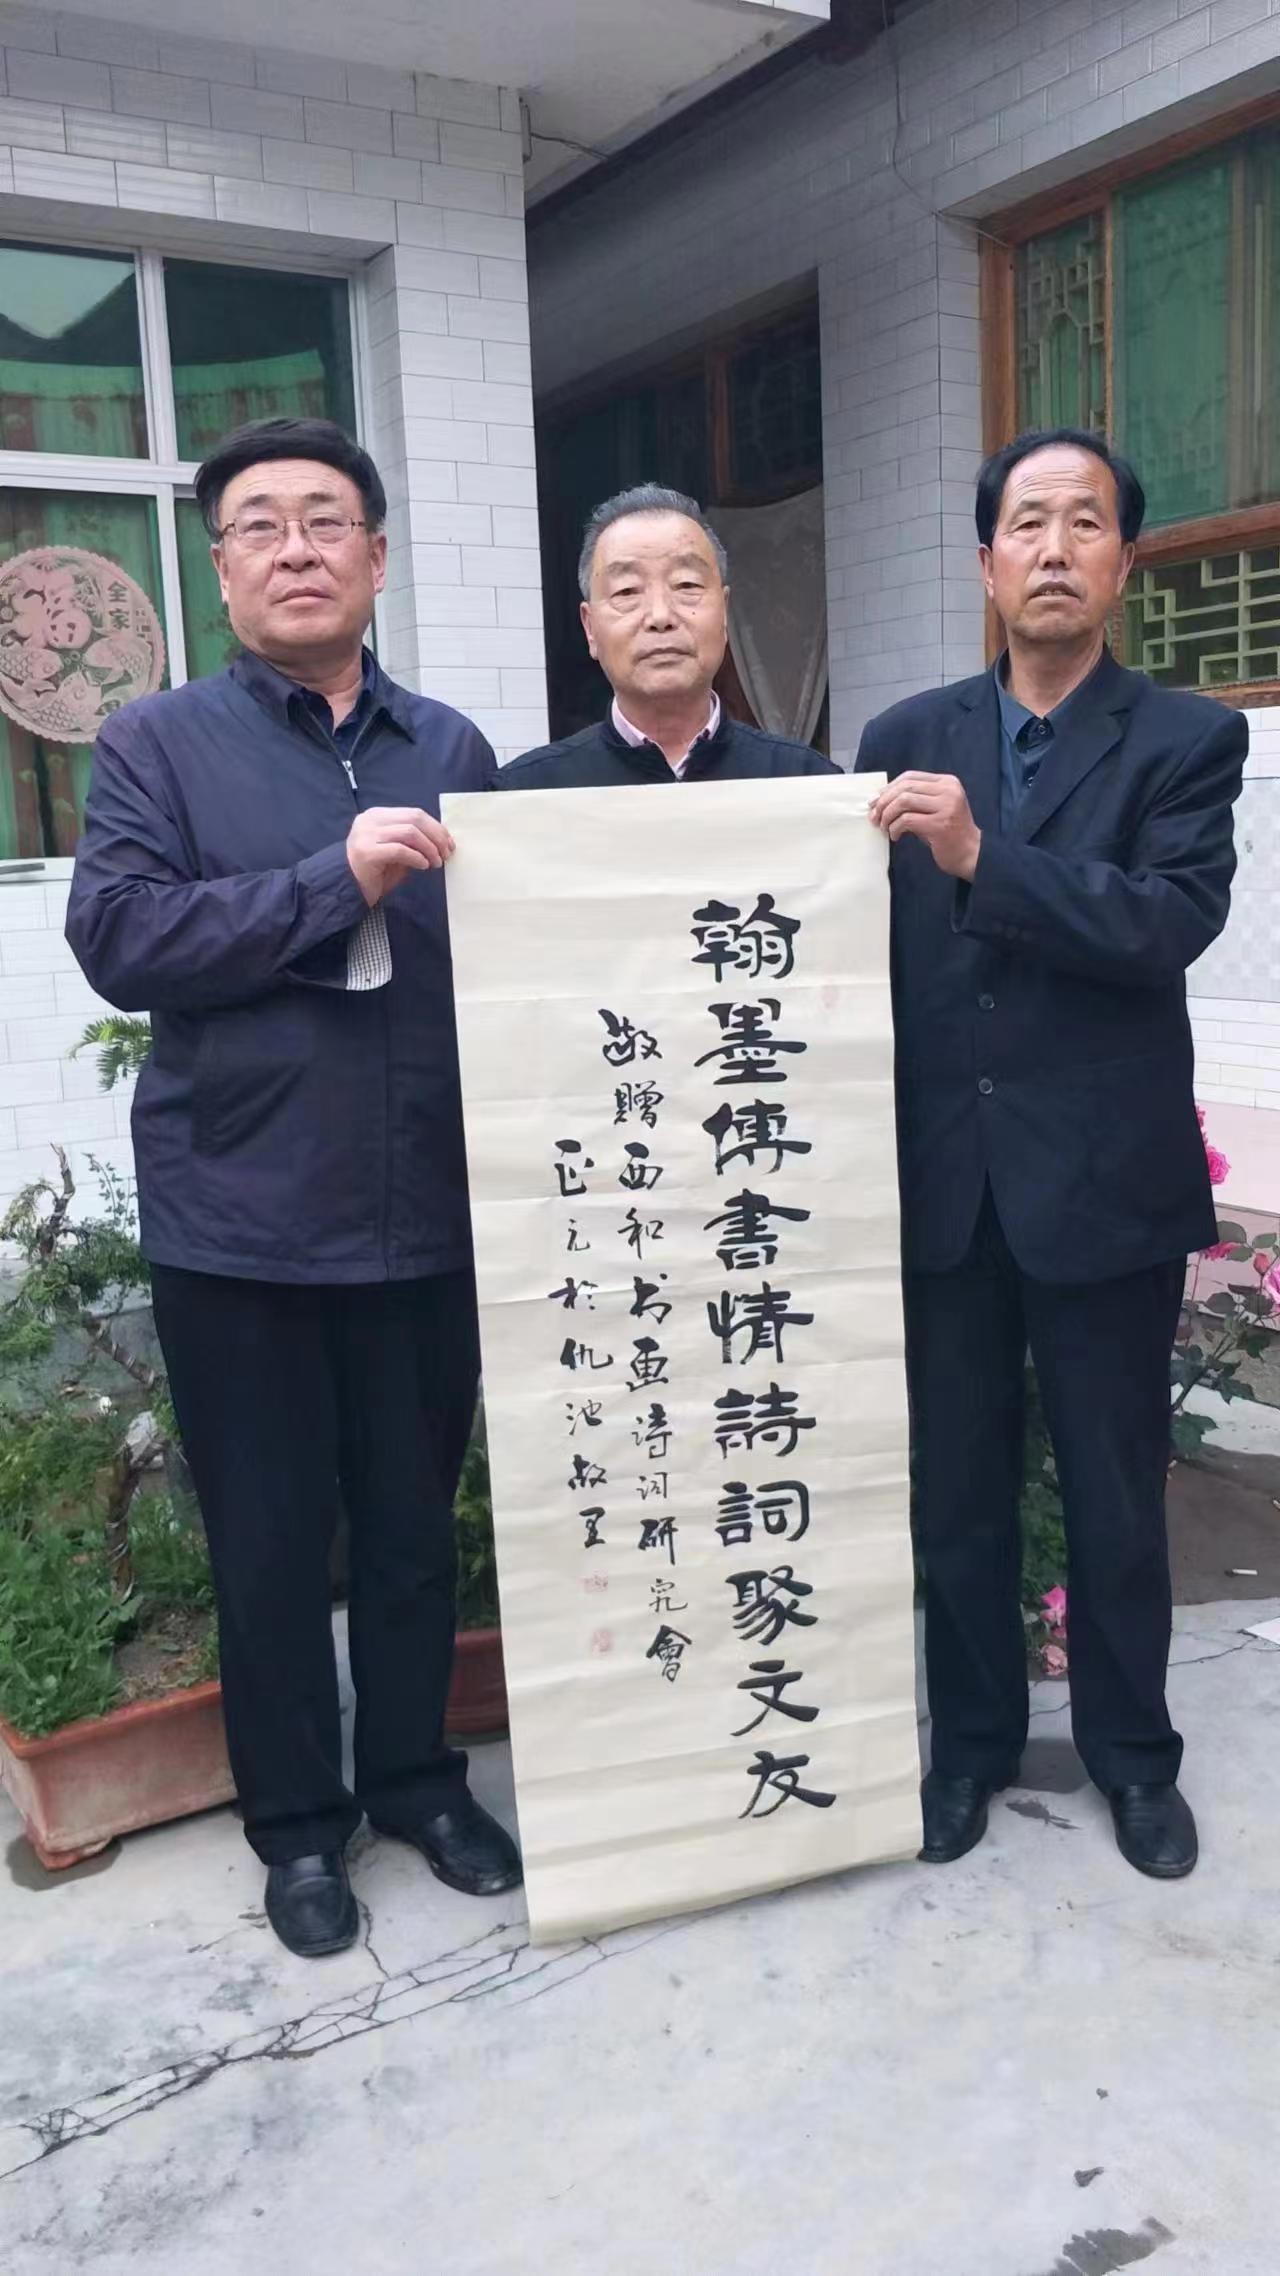 翰墨傳書情詩詞聚文友
敬贈西和书画诗词研究會
正元於仇池故里
全家福